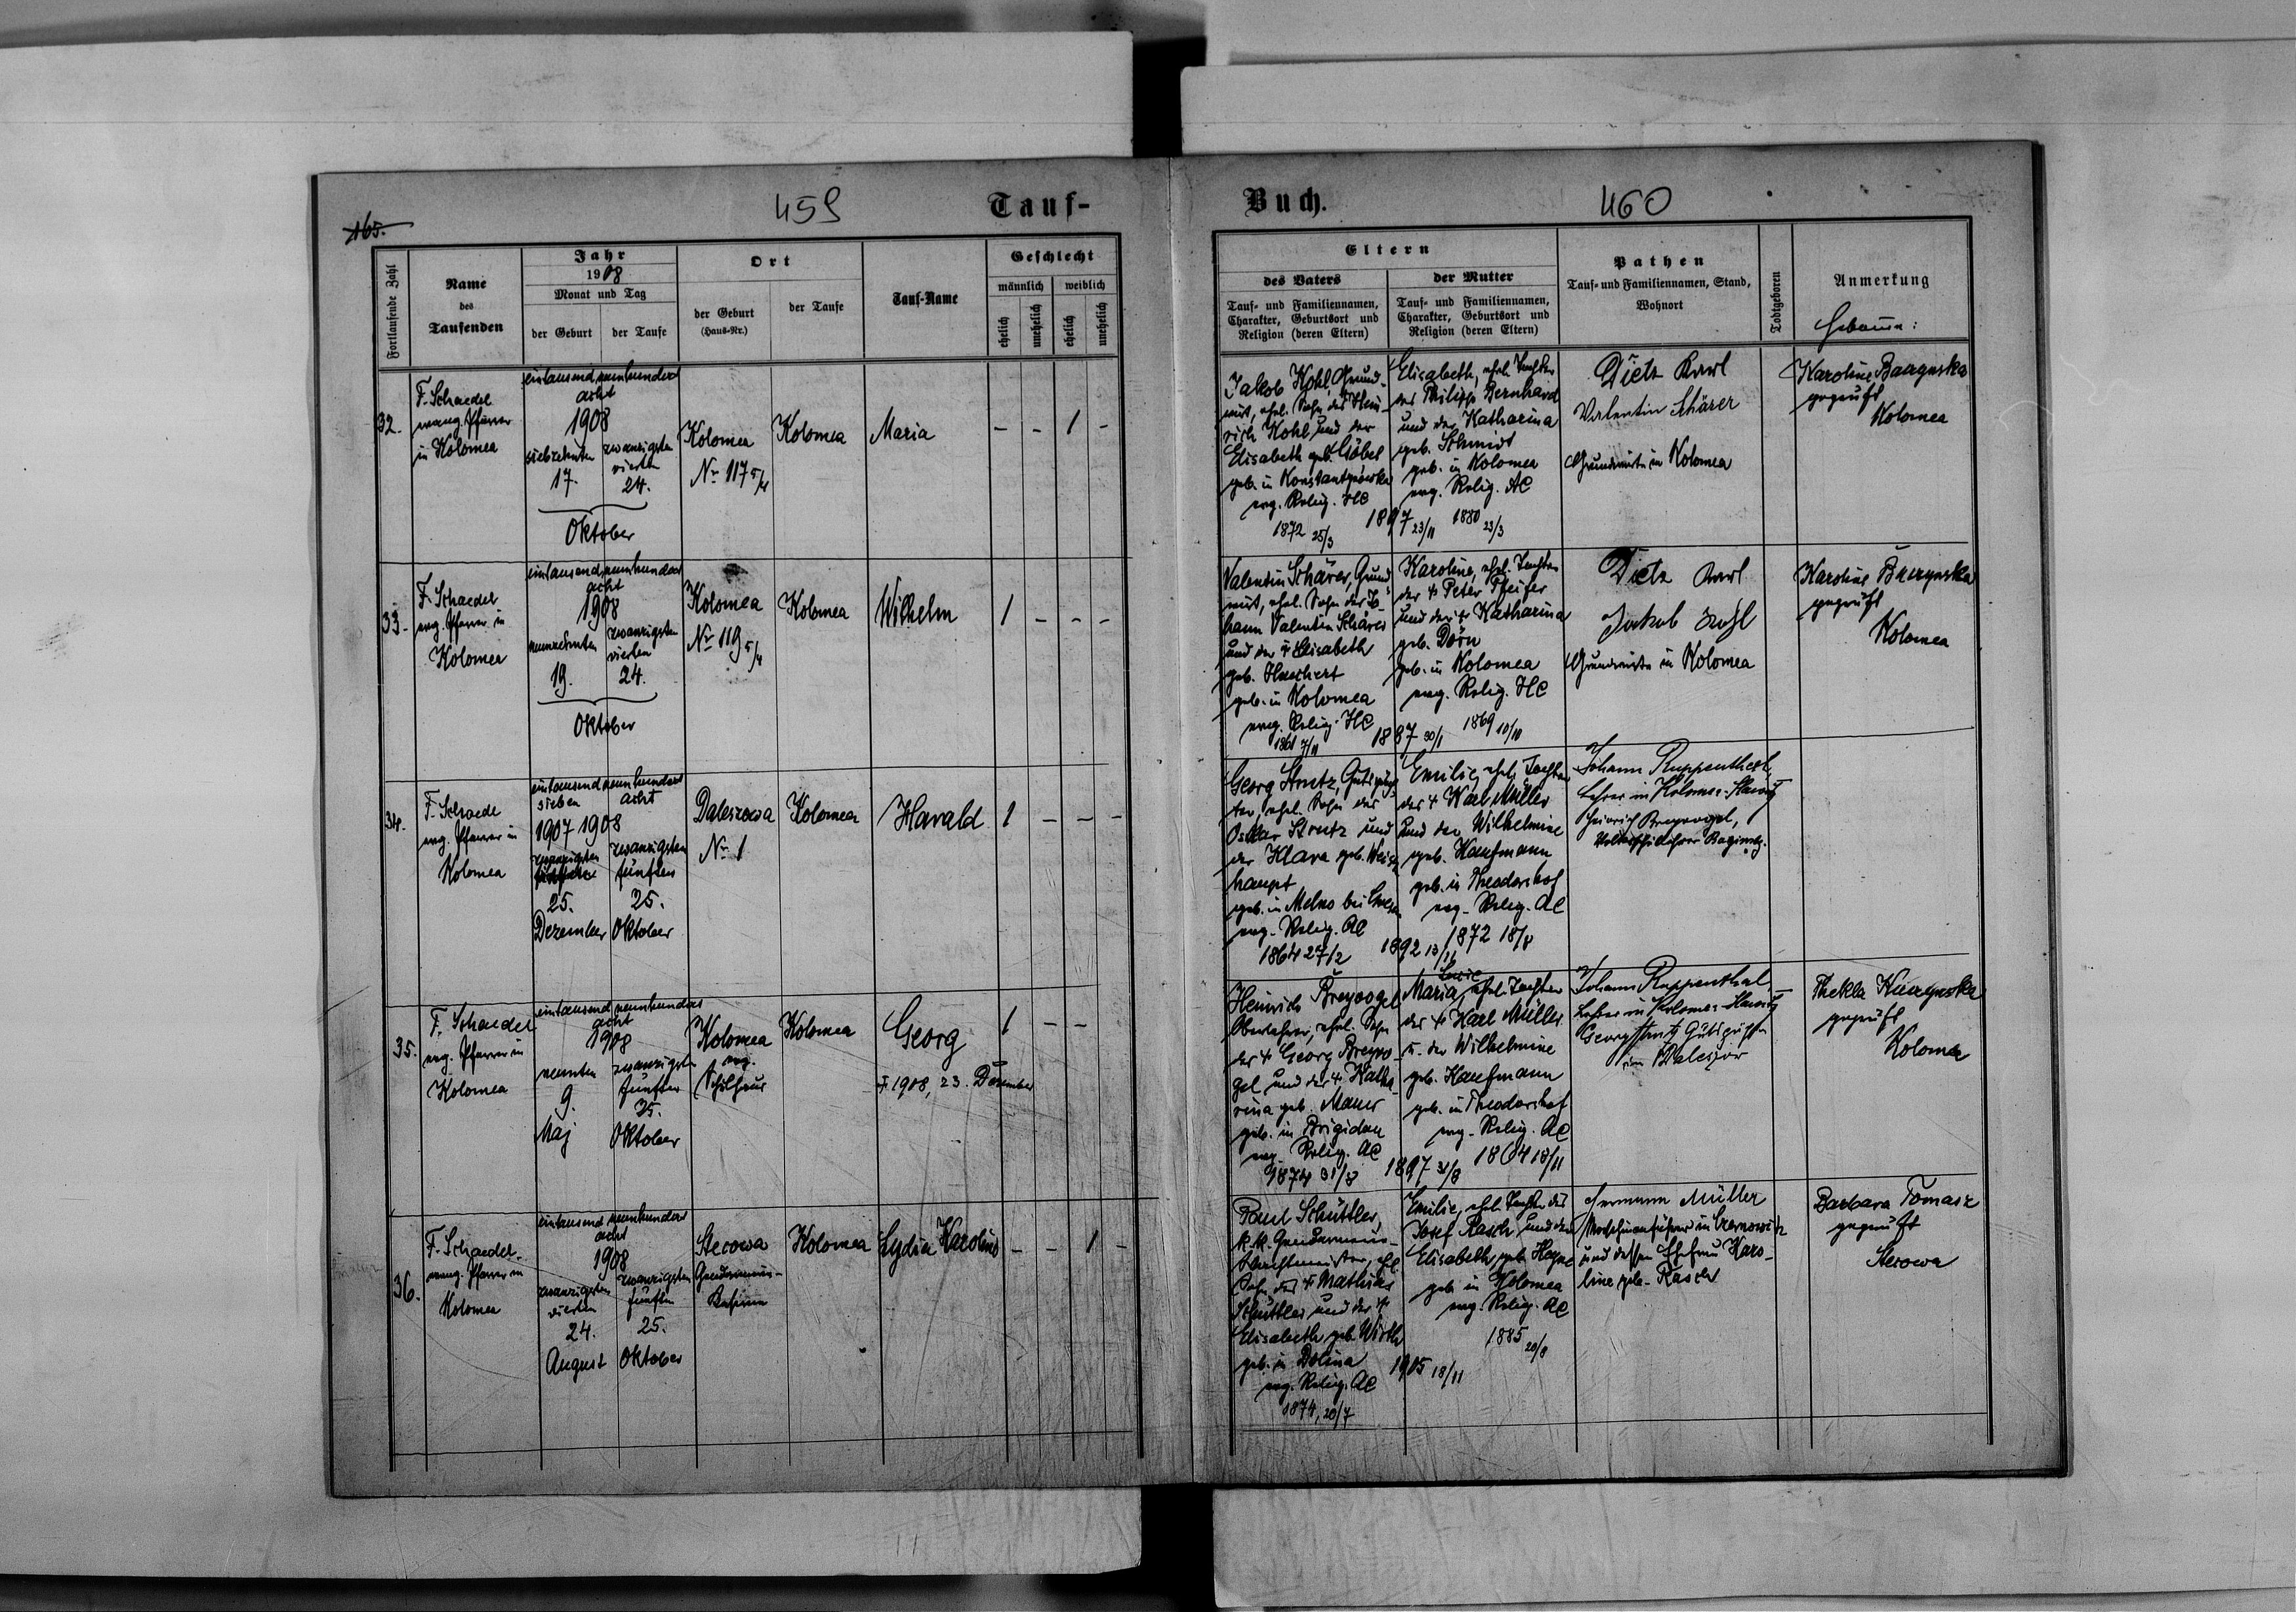 165.
459
Tauf-
Fortlaufende Zahl
Name
des
Taufenden
Jahr
1908
Monat und Tag
der Geburt
der Taufe
Ort
der Geburt
(Haus-Nr.)
der Taufe
Tauf-Name
Geschlecht
männlich
weiblich
ehelich
unehelich
ehelich
unehelich
32.
F. Schaedel
evang. Pfarrer
in Kolomea
eintausendneunhundert
acht
1908
siebzehnten
17.
zwanzigsten
vierten
24.
Oktober
Kolomea
No 117 5/4
Kolomea
Maria
- - 1 -
33.
F. Schaedel
evg. Pfarrer in
Kolomea
eintausendneunhundert
acht
1908
neunzehnten
19.
zwanzigsten
vierten
24.
Oktober
Kolomea
No 119 5/4
Kolomea
Wilhelm
1 - - -
34.
F. Schaedel
evg. Pfarrer in
Kolomea
eintausendneunhundert
sieben acht
1907 1908
zwanzigsten
25.
Dezember
zwanzigsten
fünften
25.
Oktober
Daleszowa
No 1
Kolomea
Harald
1 - - -
35.
F. Schaedel
evg. Pfarrer in
Kolomea
eintausendneunhundert
acht
1908
neunten
9.
Maj
zwanzigsten
fünften
25.
Oktober
Kolomea
evg.
Schulhaus
Kolomea
Georg
† 1908, 23. Dezember
1 - -
36.
F. Schaedel
evang. Pfarrer in
Kolomea
eintausendneunhundert
acht
1908
zwanzigsten
vierten
24.
August
zwanzigsten
fünften
25.
Oktober
Stecowa
Gendarmerie-
Kaserne
Kolomea
Lydia Karoline
- - 1 -
Buch.
460
Eltern
des Vaters
Tauf- und Familiennamen,
Charakter, Geburtsort und
Religion (deren Eltern)
der Mutter
Tauf- und Familiennamen,
Charakter, Geburtsort und
Religion (deren Eltern)
Pathen
Tauf- und Familiennamen, Stand,
Wohnort
Todtgeboren
Anmerkung
Hebamme:
Jakob Kohl, Grund-
wirt, ehel. Sohn des Hein-
rich Kohl und der
Elisabeth geb. Göbel
geb. in Konstantynowka
evg. Relig. HC
1872 25/3
1897 23/11
Elisabeth, ehel. Tochter
des Philipp Bernhard
und der Katharina
geb. Schmidt
geb. in Kolomea
evg. Relig. AC
1880 23/3
Dietz Karl
Valentin Schärer
Grundwirte in Kolomea
Karoline
geprüft
Kolomea
Valentin Schärer, Grund-
wirt, ehel. Sohn des Jo-
hann Valentin Schärer
und der † Elisabeth
geb.
geb. in Kolomea
evg. Relig. HC
1861 7/11
1887 30/1
Karoline, ehel. Tochter
des † Peter Pfeifer
und der † Katharina
geb. Dörn
geb. in Kolomea
evg. Relig. HC
1869 10/10
Dietz Karl
Jakob Kohl
Grundwirte in Kolomea
Karoline
geprüft
Kolomea
Georg Strutz, Gutspäch-
ter, ehel. Sohn des
Oskar Strutz und
der Klara geb. Weiss-
haupt
geb. in Melno bei
evg. Relig. AC
1864 27/2
1892 13/11
Emilie, ehel. Tochter
des † Karl Müller
und der Wilhelmine
geb. Kaufmann
geb. in Theodorshof
evg. Relig. AC
1872 18/8
Johann Ruppenthal,
Lehrer in Kolomea
Heinrich Breyvogel,
Volksschullehrer Baginsb.
Heinrich Breyvogel
Oberlehrer, ehel. Sohn
des † Georg Breyvo-
gel und der † Katha-
rina geb. Mauer
geb. in Brigidau
evg. Relig. AC
1874 31/8
1897 31/8
Maria, ehel. Tochter
des † Karl Müller
u. der Wilhelmine
geb. Kaufmann
geb. in Theodorshof
evg. Relig. AC
1864 18/11
Johann Ruppenthal
Lehrer in Kolomea
Georg Strutz Gutspächter
Thekla
geprüft
Kolomea
Paul Schüttler,
k.k. Gendarmerie-
Wachtmeister, ehel.
Sohn des † Mathias
Schüttler und der †
Elisabeth geb. Wirth
geb. in Dolina
evg. Relig. AC
1874, 20/7
1905 18/11
Emilie, ehel. Tochter des
Josef Rasch und der
Elisabeth, geb.
geb. in Kolomea
evg. Relig. AC
1885 20/8
Hermann Müller
in Czernowitz
und dessen Ehefrau Karo-
line geb. Rasch
Barbara Tomasz
geprüft
Stecowa